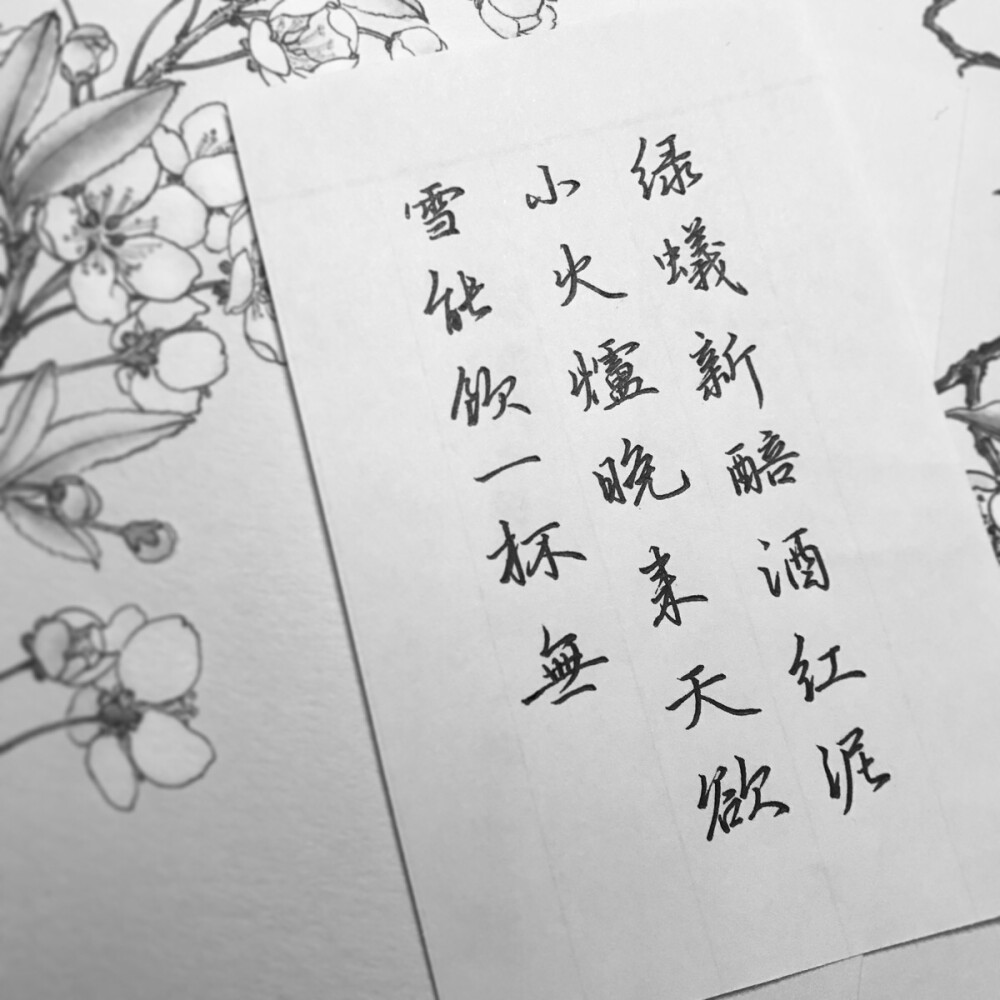 绿蟻新醅酒红泥
小火爐晚来天欲
雪能飲一杯無